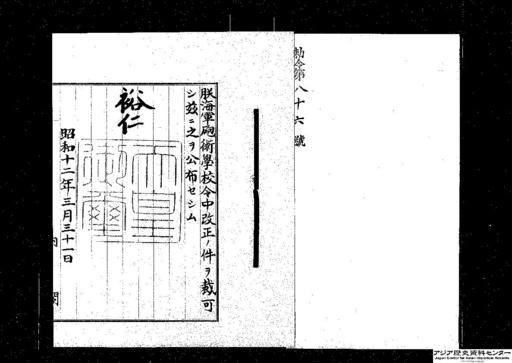 勅令第八十六號
朕海軍砲術學校令中改正ノ件ヲ裁可
シ茲ニ之ヲ公布セシム
裕仁
天皇御璽
昭和十二年三月三十一日
内閣
アジア歴史資料センター
Japan Center for Asian Historical Records